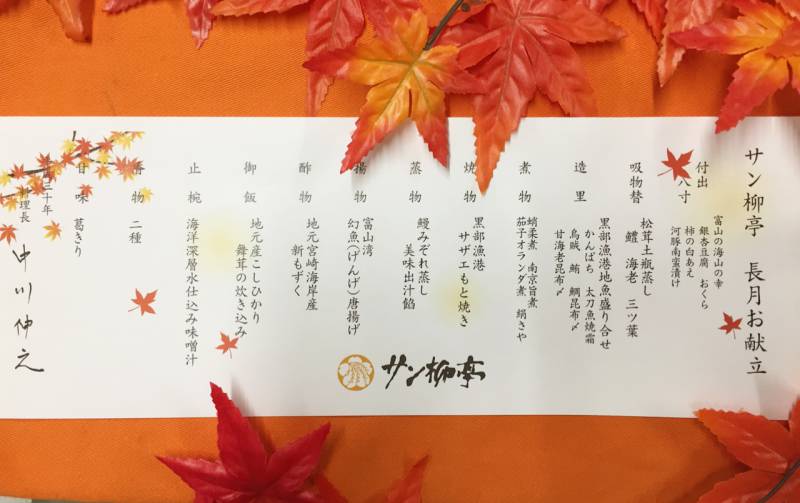 サン柳亭 長月お献立
付出
八寸
富山の海山の幸
銀杏豆腐 おくら
柿の白あえ
河豚南蛮漬け
吸物替
松茸土瓶蒸し
鱧 海老 三ツ葉
造里
黒部漁港地魚盛り合せ
かんぱち 太刀魚焼霜
烏賊 鮪 鯛昆布〆
甘海老昆布〆
煮物
蛸柔煮 南京旨煮
茄子オランダ煮 絹さや
焼物
黒部漁港
サザエもと焼き
蒸物
鰻みぞれ蒸し
美味出汁餡
揚物
富山湾
幻魚(げんげ)唐揚げ
酢物
地元宮崎海岸産
新もずく
御飯
地元産こしひかり
舞茸の炊き込み
止椀
海洋深層水仕込み味噌汁
香物
二種
甘味
葛きり
三十年
料理長
中川伸之
サン柳亭